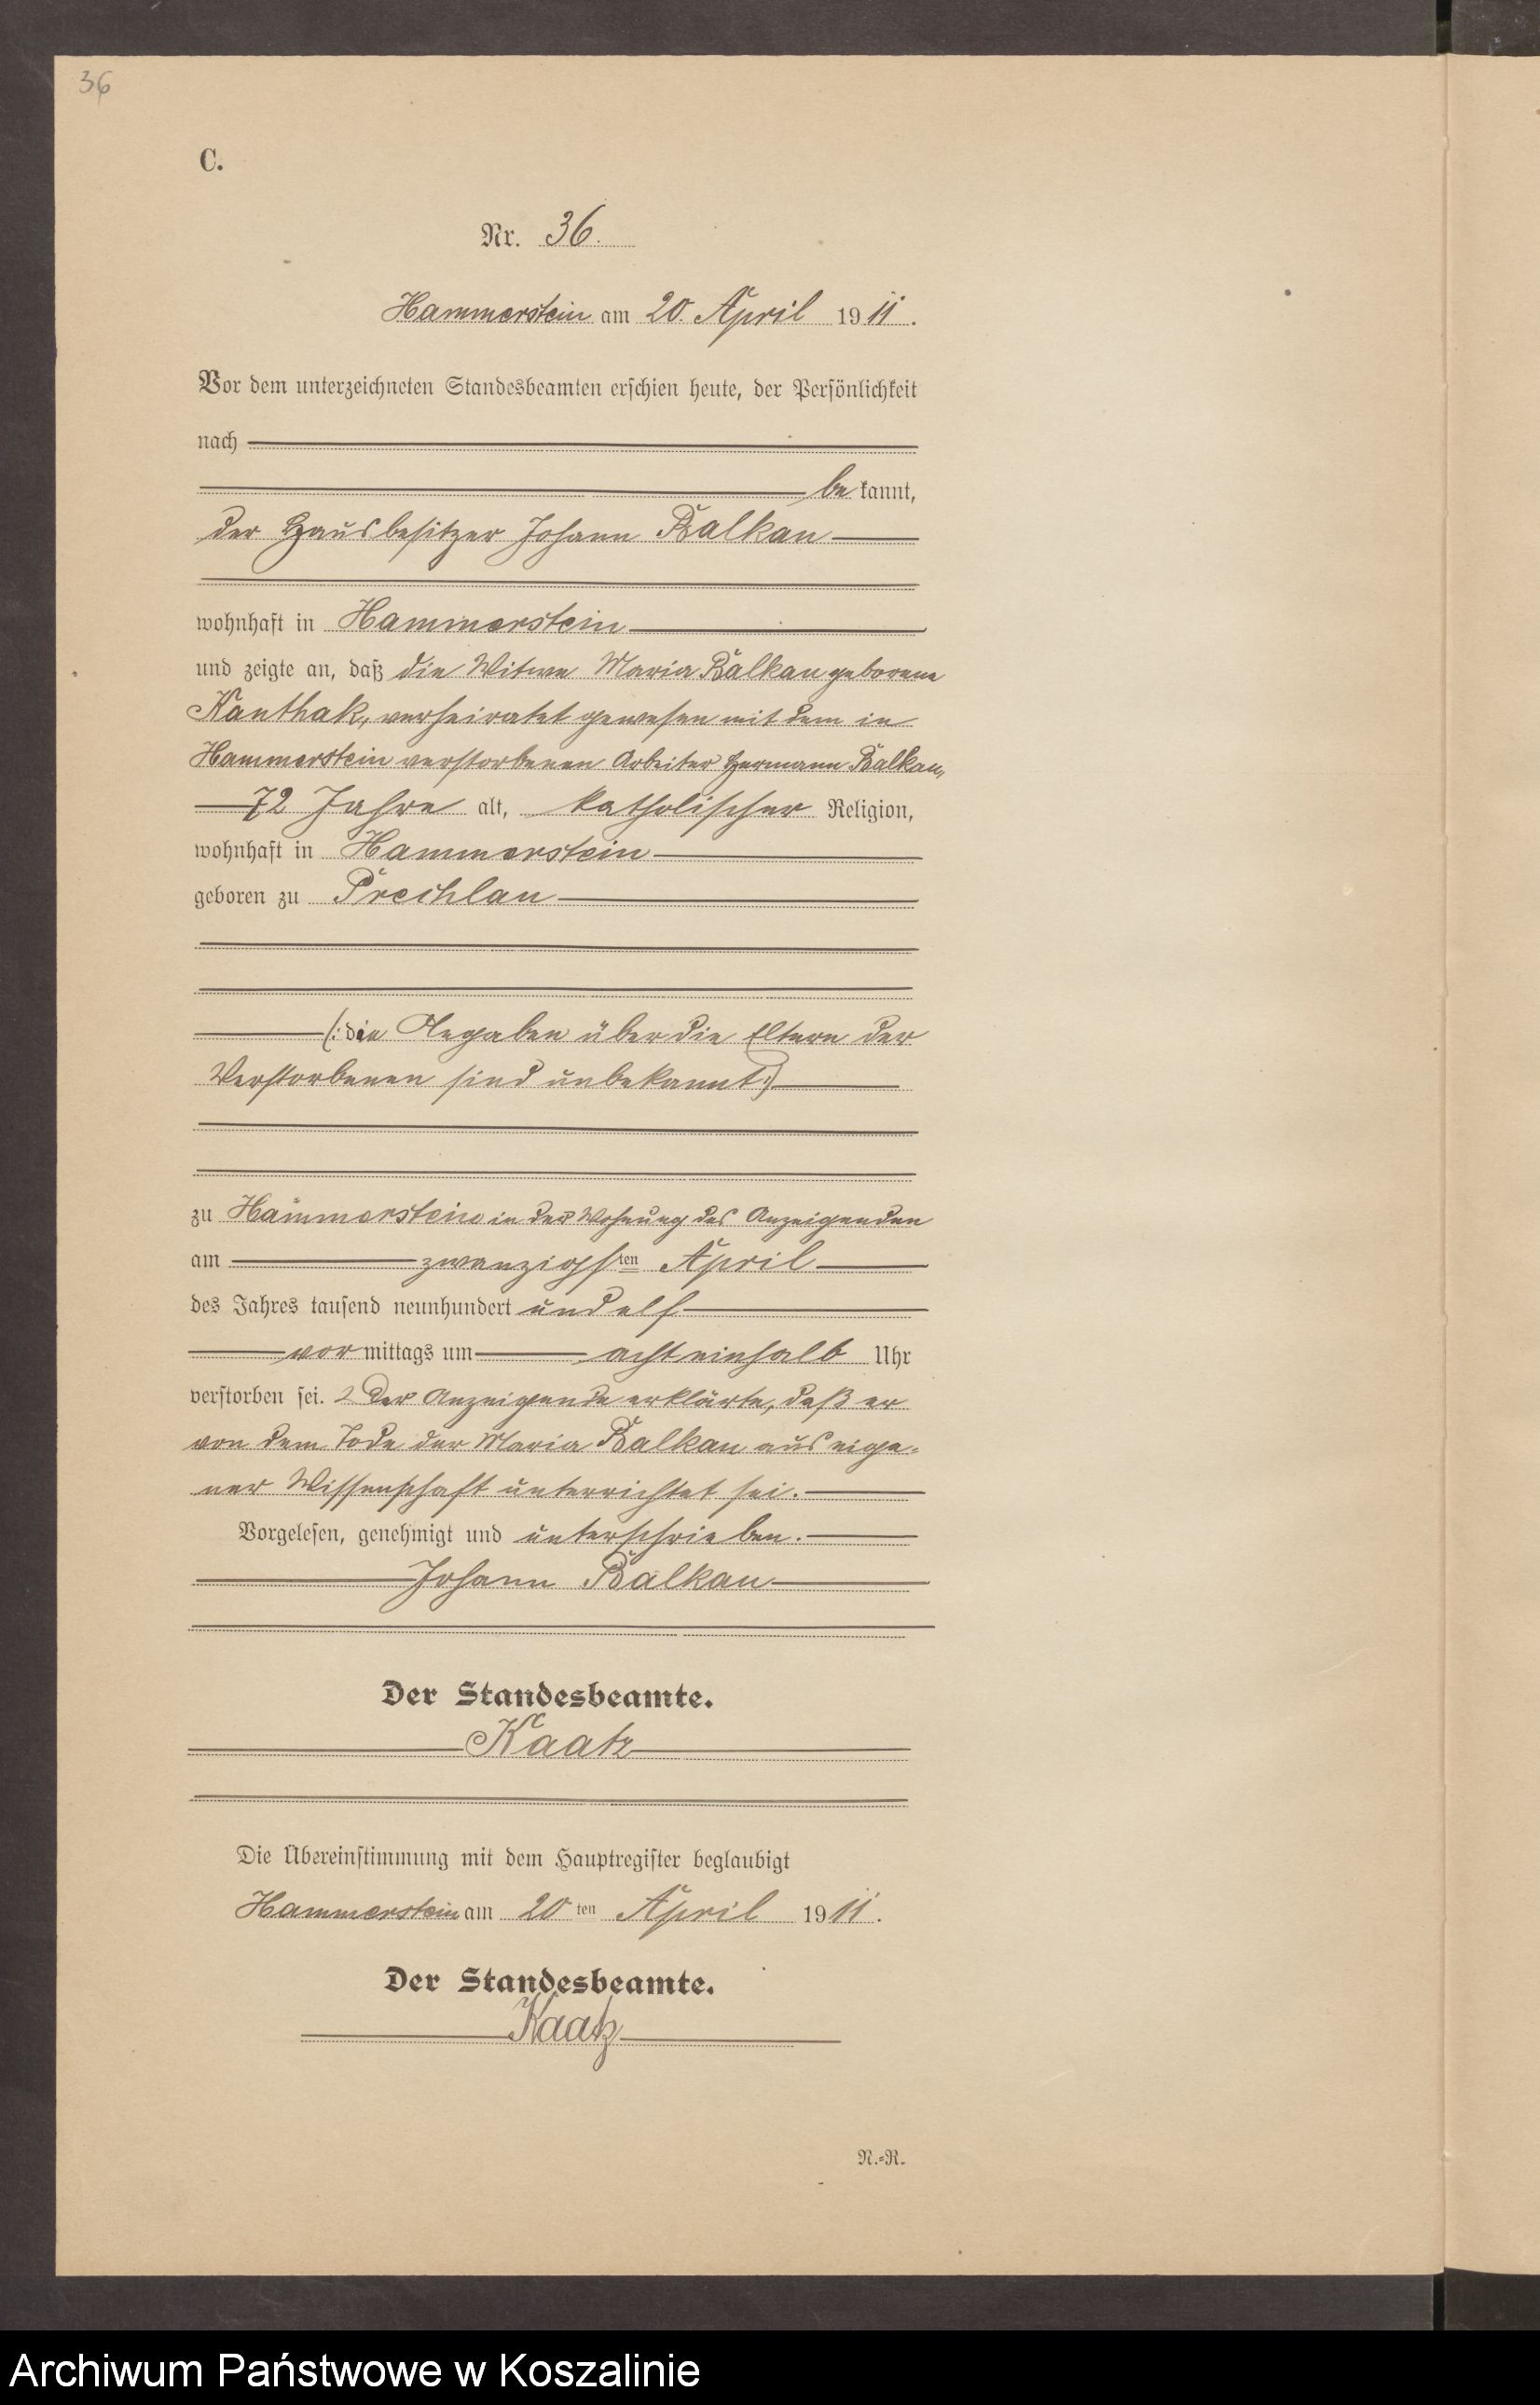 36
C.
Nr. 36.
Hammerstein am 20. April 1911.
Vor dem unterzeichneten Standesbeamten erschien heute, der Persönlichkeit
nach
bekannt,
der Hausbesitzer Johann Balkau
wohnhaft in Hammerstein
und zeigte an, daß die Witwe Maria Balkau geborene
Kanthak, verheiratet gewesen mit dem in
Hammerstein verstorbenen Arbeiter Hermann Balkau,
72 Jahre alt, katholischer Religion,
wohnhaft in Hammerstein
geboren zu Prechlau
(: die Angaben über die Eltern der
Verstorbenen sind unbekannt :)
zu Hammerstein in der Wohnung des Anzeigenden
am zwanzigsten April
des Jahres tausend neunhundert und elf
vormittags um acht einhalb Uhr
verstorben sei. Der Anzeigende erklärte, daß er
von dem Tode der Maria Balkau aus eige-
ner Wissenschaft unterrichtet sei.
Vorgelesen, genehmigt und unterschrieben.
Johann Balkau
Der Standesbeamte.
Kaatz
Die Übereinstimmung mit dem Hauptregister beglaubigt
Hammerstein am 20ten April 1911.
Der Standesbeamte.
Kaatz
N.=R.
Archiwum Państwowe w Koszalinie